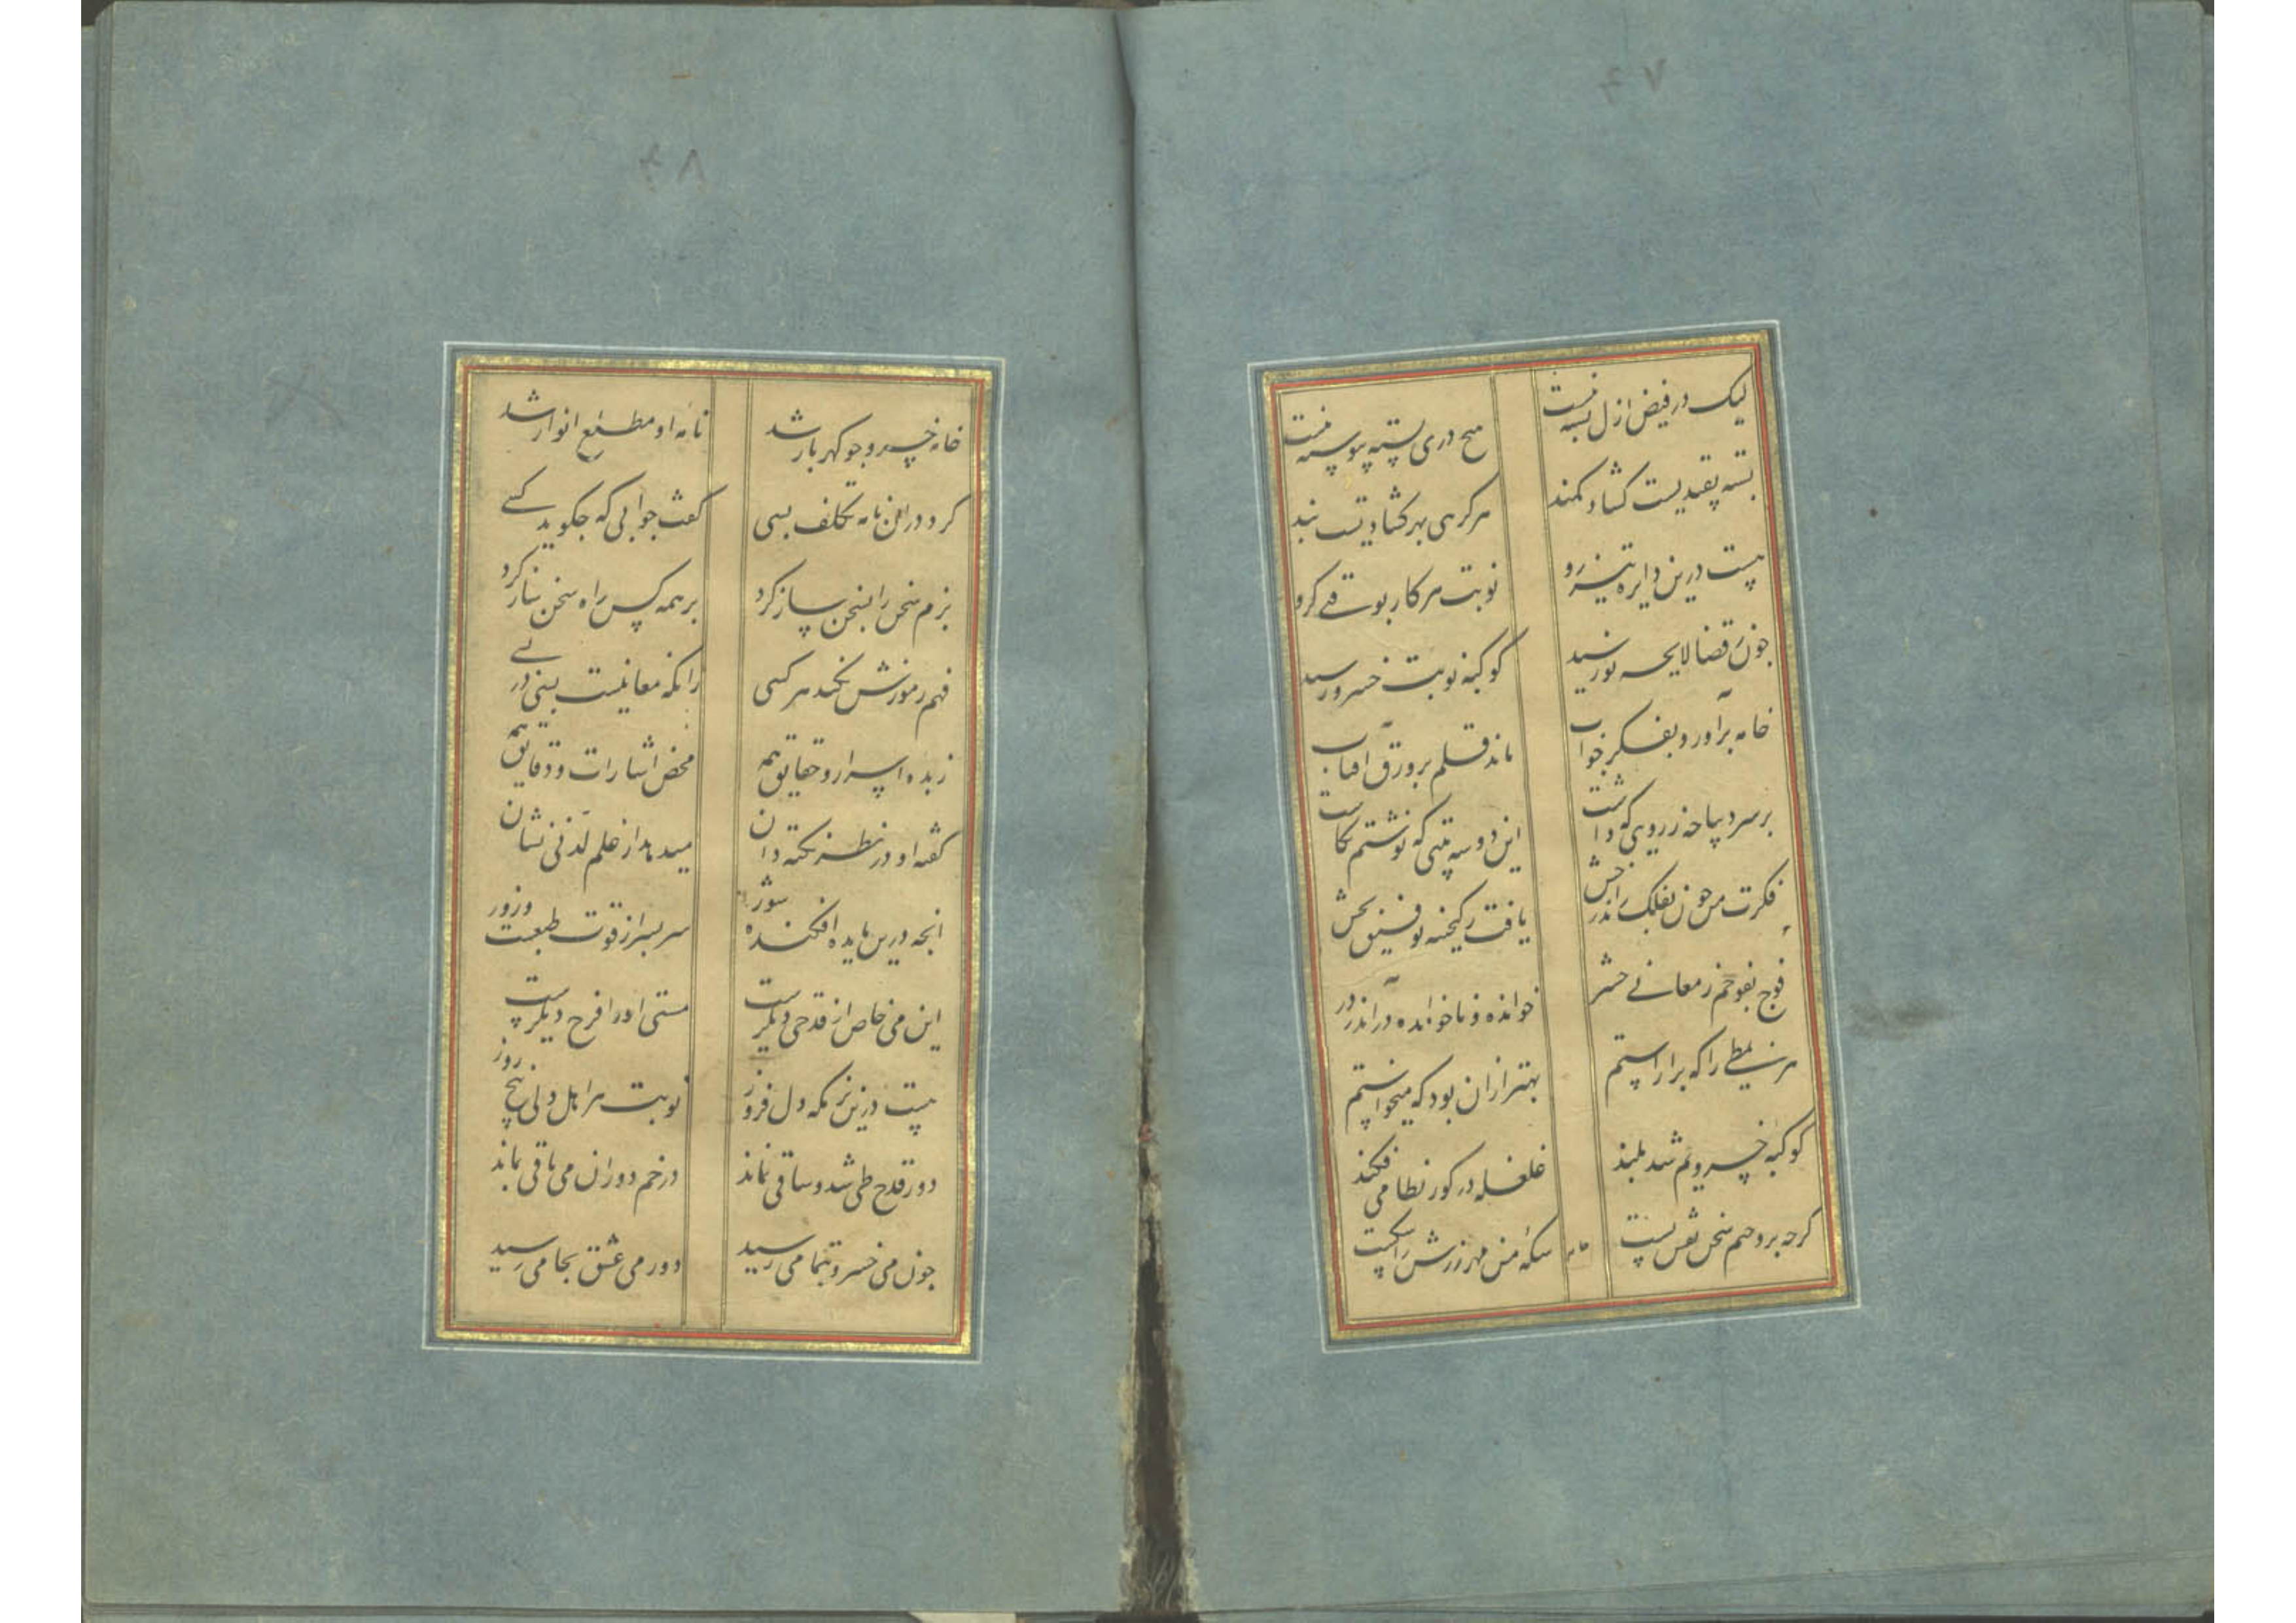 ۴۷
لیک در فیض ازل بسته نیست
هیچ دری بسته پیوسته نیست
بسته بقید یست کشاد کمند
هر کرهی بهر کشادیست بند
هست درین دایره تیز رو
نوبت هر کار بوقتی کرو
چون ز قضا لایحه نور رسید
کوکبه نوبت خسرو رسید
خامه برآورد بفکر جواب
ماند قلم بر ورق آفتاب
بر سر دیباچه ز رویی که داشت
این دو سه بیتی که نوشتم نکاشت
فکرت من چون بفلک راند رخش
یافت ز کنجینه توفیق بخش
فوج بفوجم ز معانی حشر
خوانده و ناخوانده درآمد ز در
هر نمطی را که برآراستم
بهتر ازان بود که میخواستم
کوکبه خسرویم شد بلند
غلغله در کور نظامی فکند
کرچه برو ختم سخن نقش بست
سکه من مهر زرش را شکست
۴۸
خامه خسرو چو کهربار شد
نامه او مطلع انوار شد
کرد در آن نامه تکلف بسی
کفت جوابی که چکوید کسی
بزم سخن را بسخن ساز کرد
بر همه کس راه سخن باز کرد
فهم رموزش نکند هر کسی
زانکه معانیست بسی در بسی
زبده اسرار و حقایق همه
محض اشارات و دقایق همه
کفته او در نظر نکته دان
میدهد از علم لدنی نشان
آنچه درین مایده افکنده شور
سر بسر از قوت طبعست و زور
این می خاص از قدحی دیکرست
مستی او را فرح دیکرست
هست درین بزمکه دل فروز
نوبت هر اهل دلی پنج روز
دور قدح طی شد و ساقی نماند
در خم دوران می باقی نماند
چون می خسرو بتمامی رسید
دور می عشق بجامی رسید